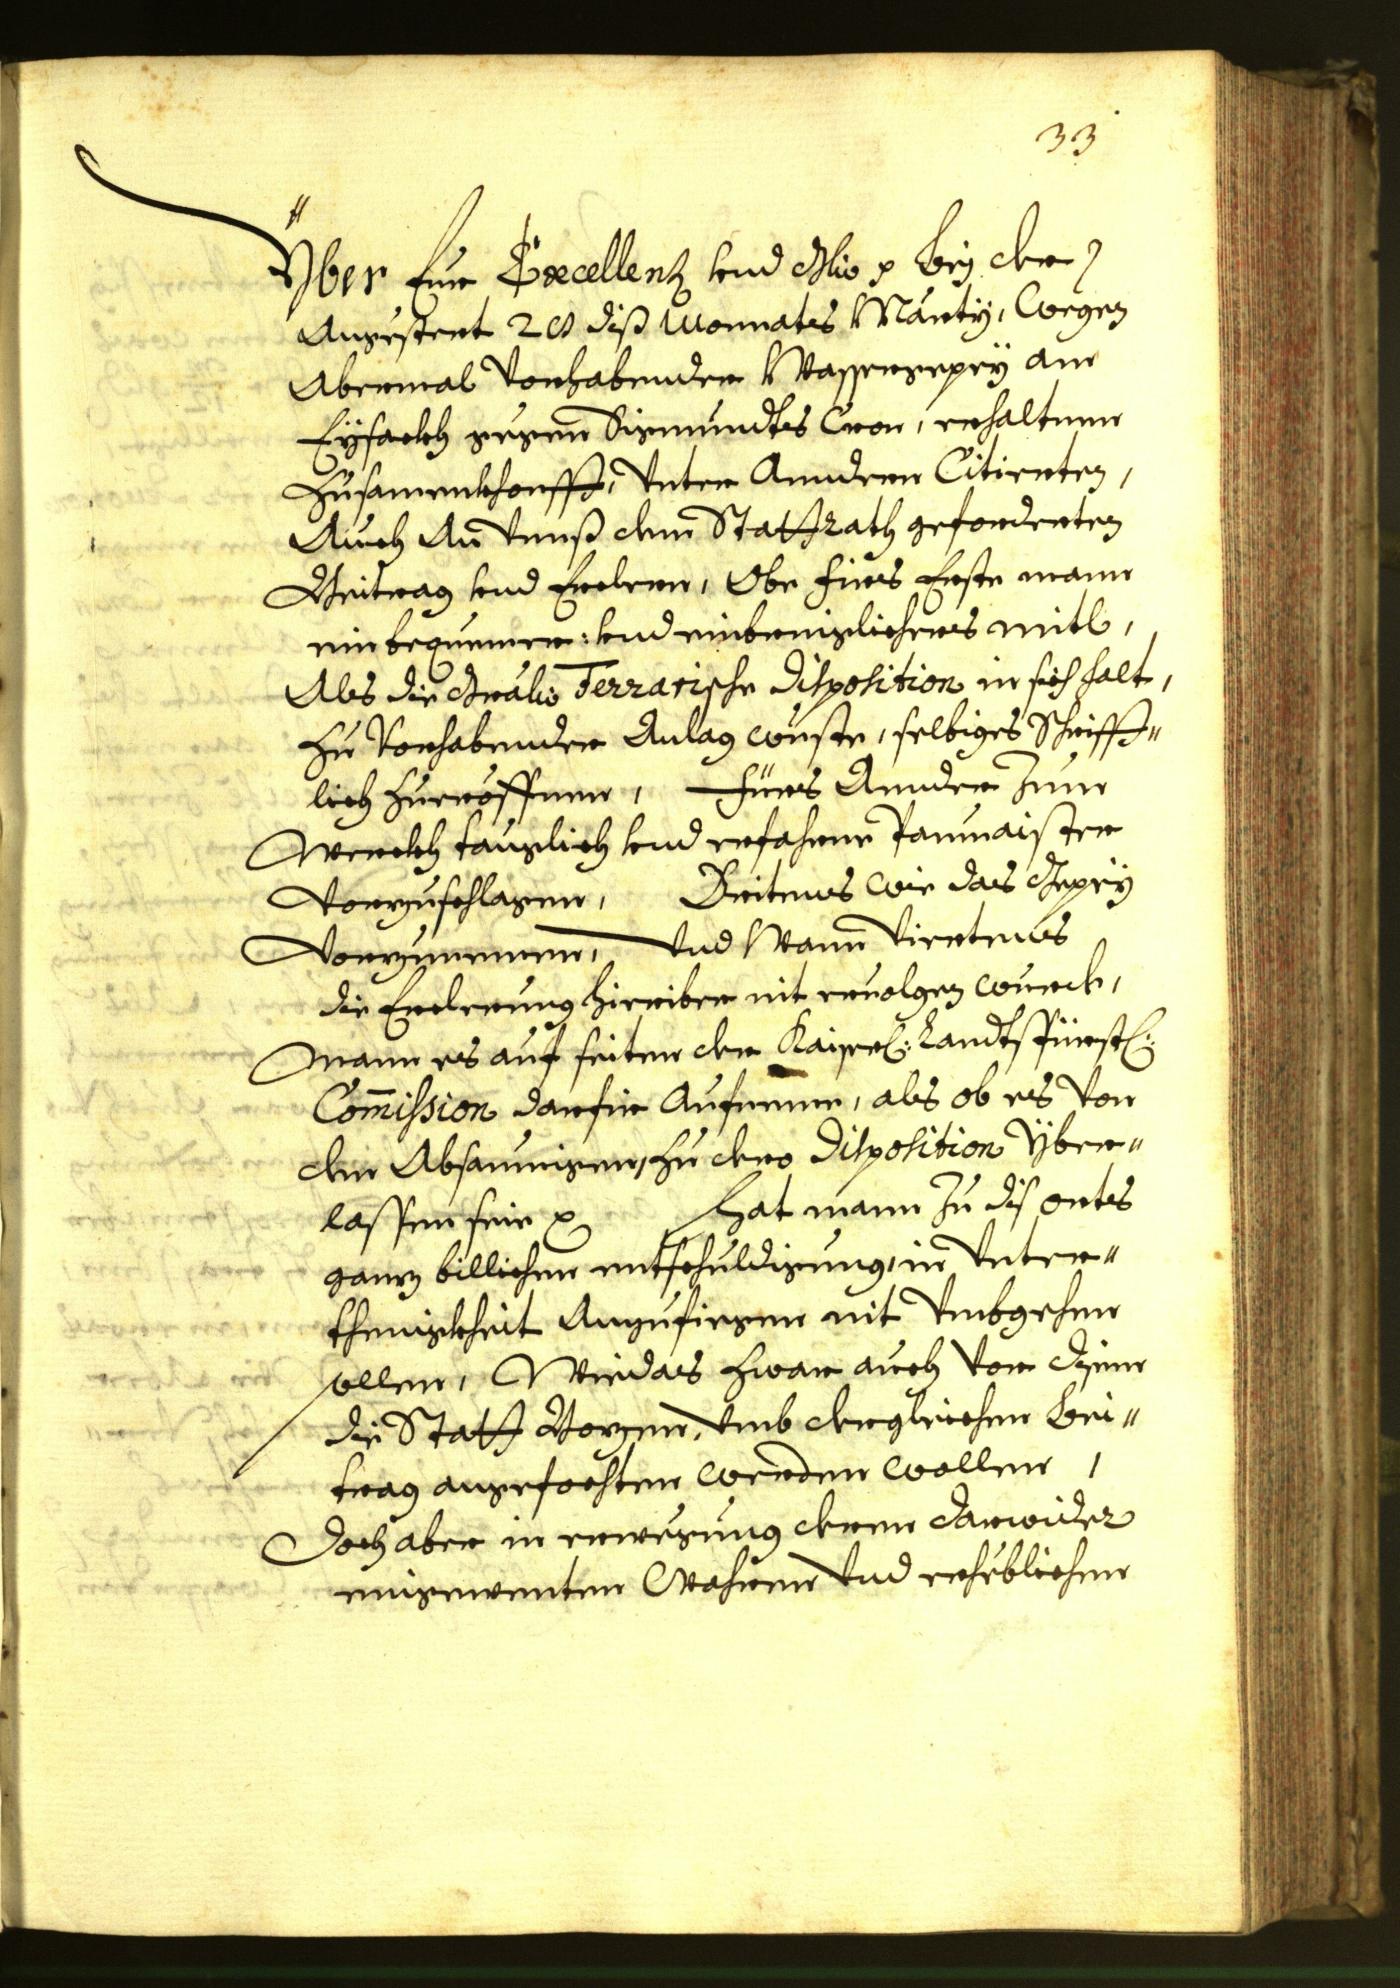 33
Yber Eur Excellentz vnd Glio ꝛ bey der
Angestert 20 diß Monnats Marty, wegen
Abermal vorhabenden Wassergepey am
Eÿsackh gegen Sigmundts Cron, erhaltnen
Zusamenkhonfft, vnter Anndern Citierten,
Auch An vnnß dem Stattrath gefonderten
Beitrag vnd Erclern, Obe fürs Erste mann
ein bequemer: vnd einbringlichers mitl,
Als die Grälis Terrarische Disposition in sich halt,
zu vorhabender Anlag wüste, selbiges Schrifft„
lich zueröffnen, Fürs Annder zum
Werckh tauglich vnd erfahrne Paumaister
vorzuschlagen, Dritens wie das Gepeÿ
vorzunemmen, vnd Wann viertens
die Erclerung hierüber nit ervolgen wurde,
mann es auf seiten der Kaiserl: Landtsfürstl:
Commission darfür Aufneme, als ob es von
den Absaumigen, zu dero Disposition Yber„
lassen seie ꝛ Hat mann zu dis orts
gantz billichen entschuldigung, in vnter„
thenigkheit Anzufiegen nit vmbgehen
sollen, Wie das zwar auch von Ihme
die Statt Bozen, vmb dergleichen bei„
trag angefochten werden wollen,
Doch aber in erwegung deren darwider
eingewenten Wahren vnd erheblichen